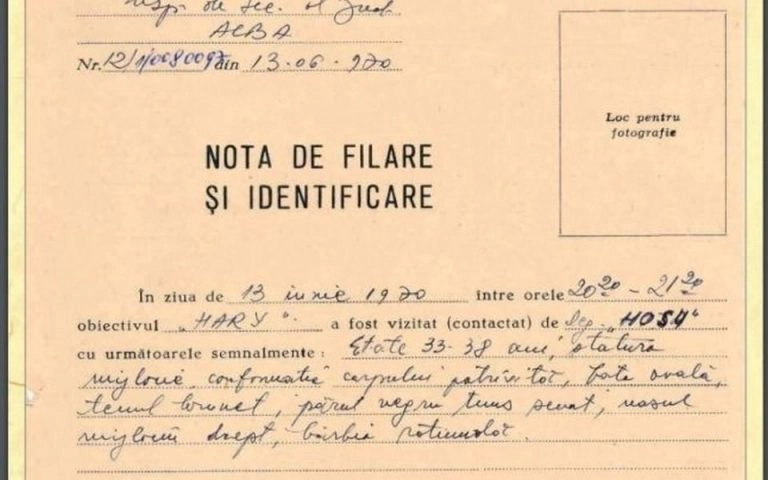 Insp. de Sec. al Jud.
ALBA
Nr. 12/1/0080097 din 13.06.970
Loc pentru
fotografie
NOTA DE FILARE
ȘI IDENTIFICARE
În ziua de 13 iunie 1970 între orele 20²⁰ – 21²⁰
obiectivul „HARY". a fost vizitat (contactat) de Leg. „HOSU"
cu următoarele semnalmente: Etate 33-38 ani, statură
mijlocie, conformația corpului potrivită, fața ovală,
tenul brunet, părul negru tuns scurt, nasul
mijlociu drept, bărbia rotundă.